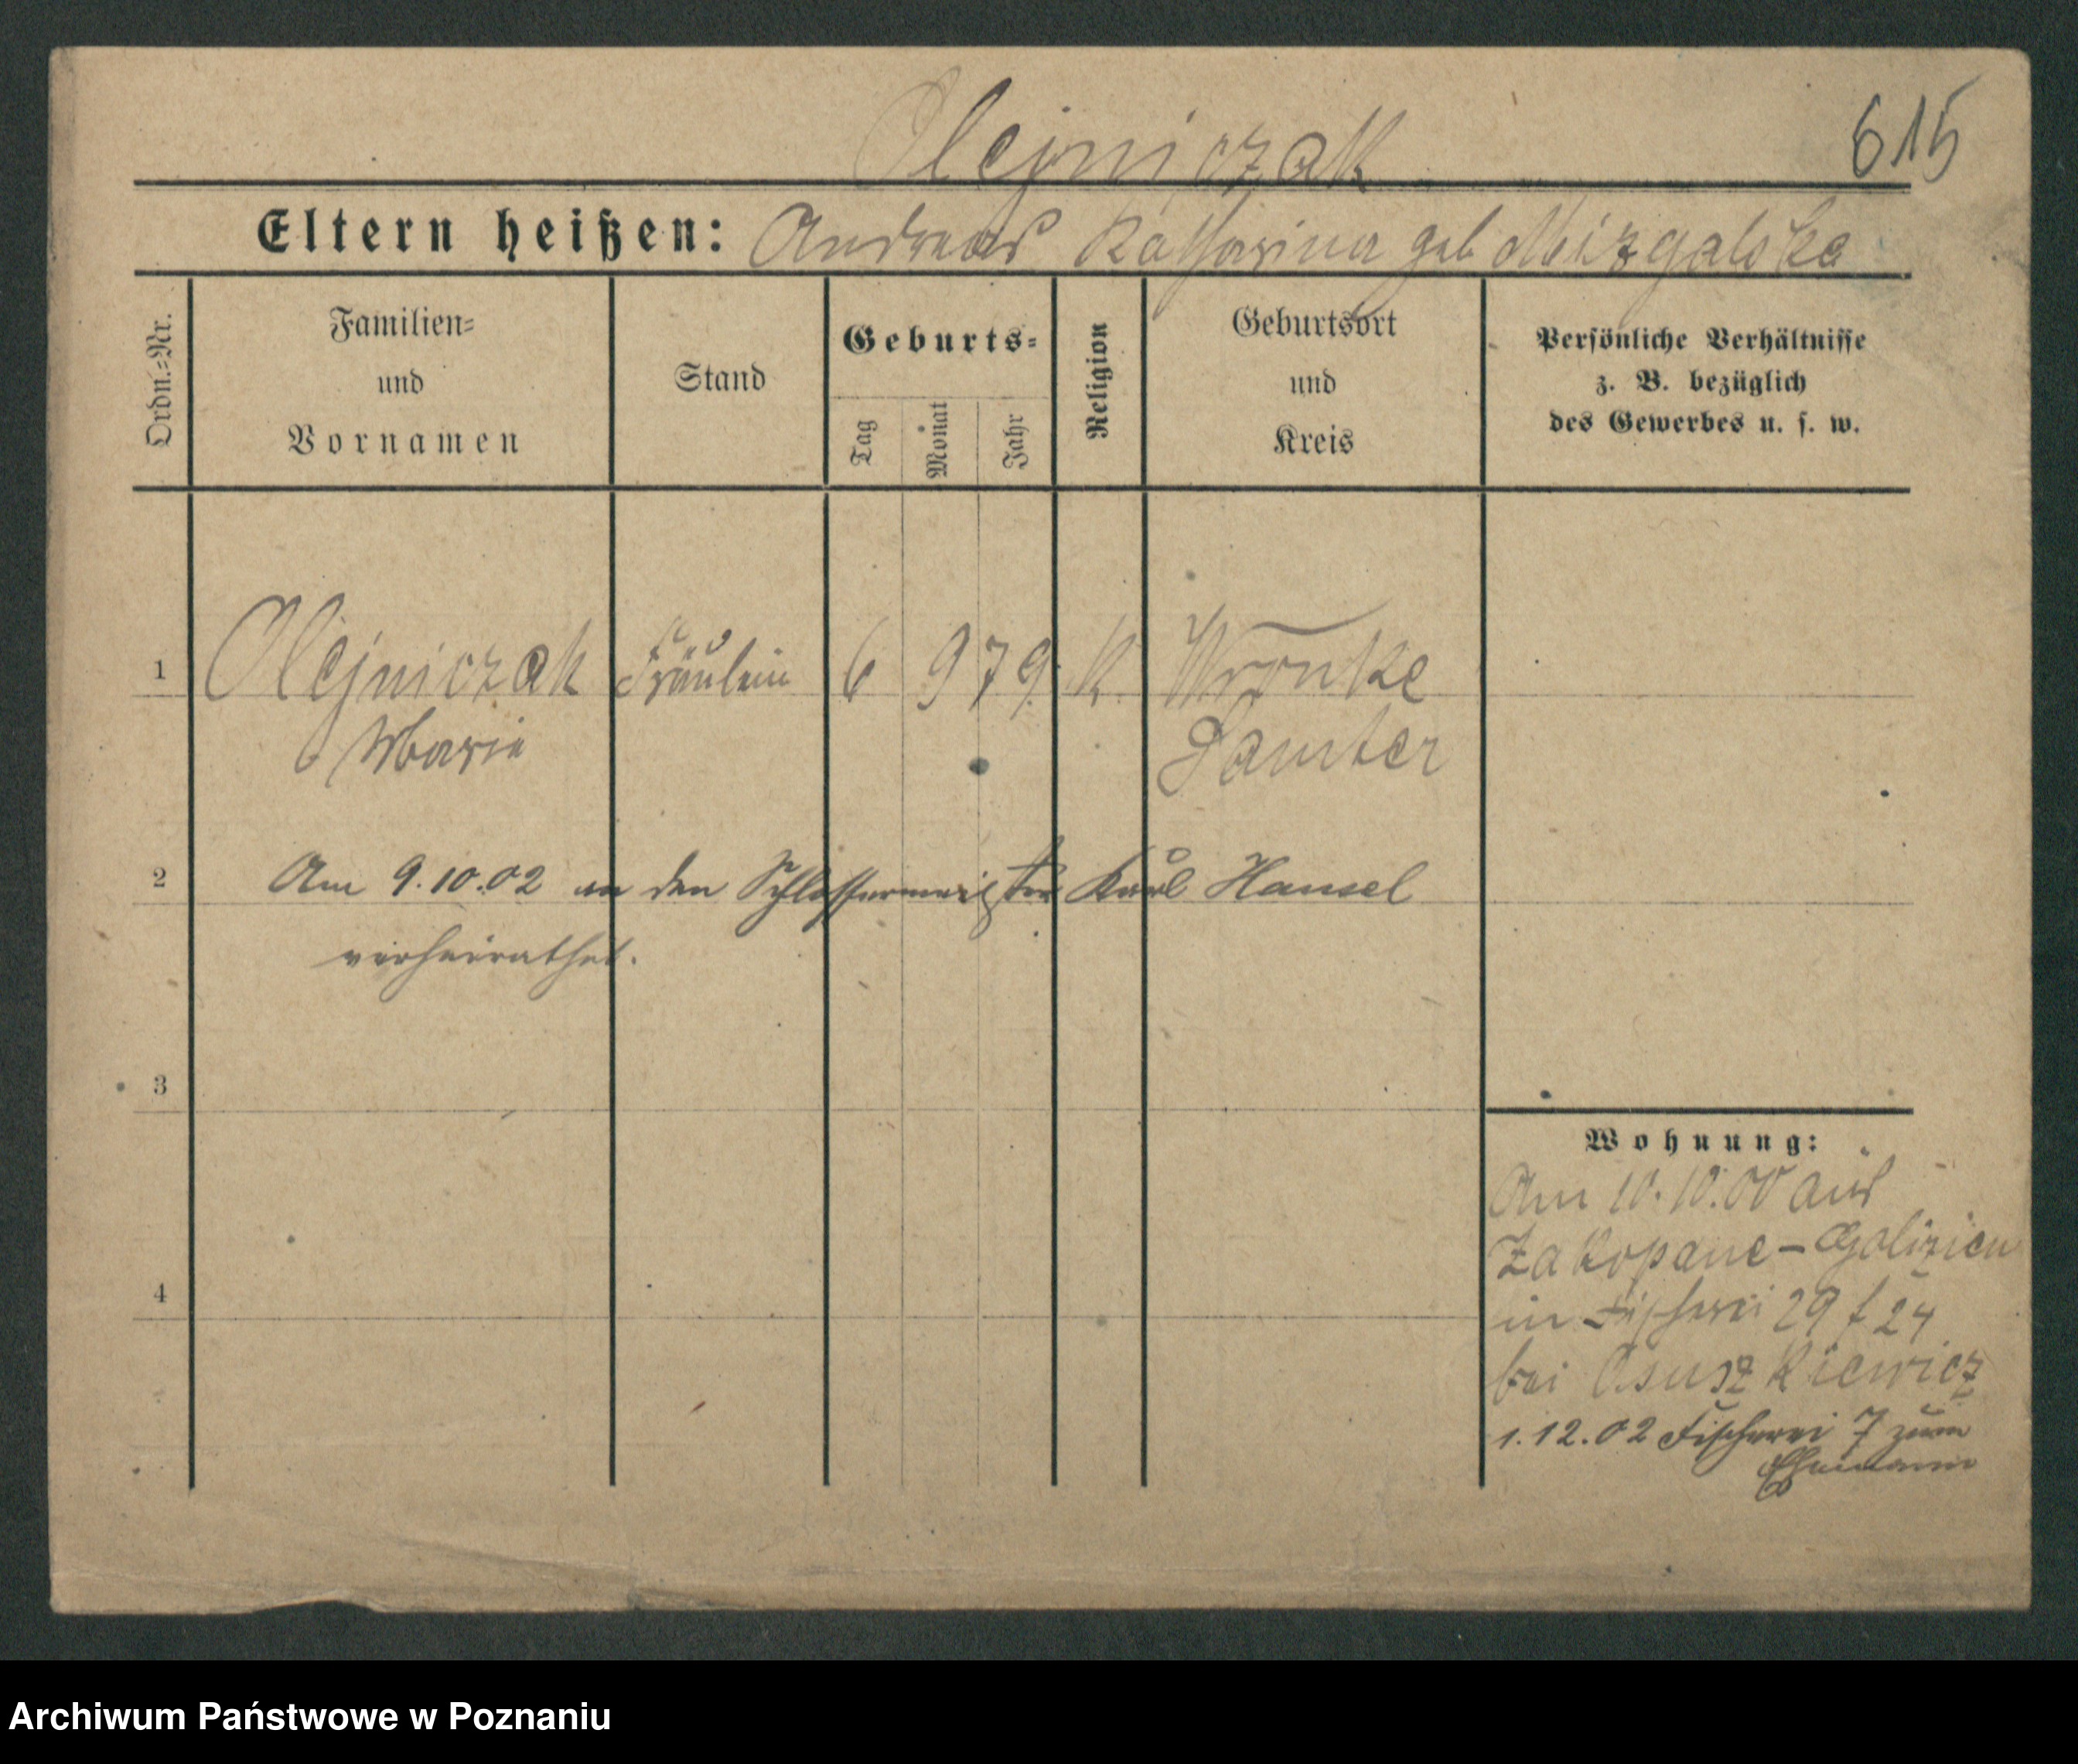 Olejniczak 615
Eltern heißen: Andreas Katharina geb Mizgalska
Ordn.=Nr.
Familien=
und
Vornamen
Stand
Geburts=
Tag
Monat
Jahr
Religion
Geburtsort
und
Kreis
Persönliche Verhältnisse
z. B. bezüglich
des Gewerbes u. s. w.
1 Olejniczak Fräulein 6 9 79. K. Wronke
Marie Samter
2 Am 9.10.02 an den Schlossermeister Karl Hansel
verheirathet.
3
Wohnung:
Am 10.10.00 aus
Zakopane-Galizien
in Fischerei 29 f 24
4
bei Osuszkiewicz
1.12.02 Fischerei 7 zum
Ehemann
Archiwum Państwowe w Poznaniu